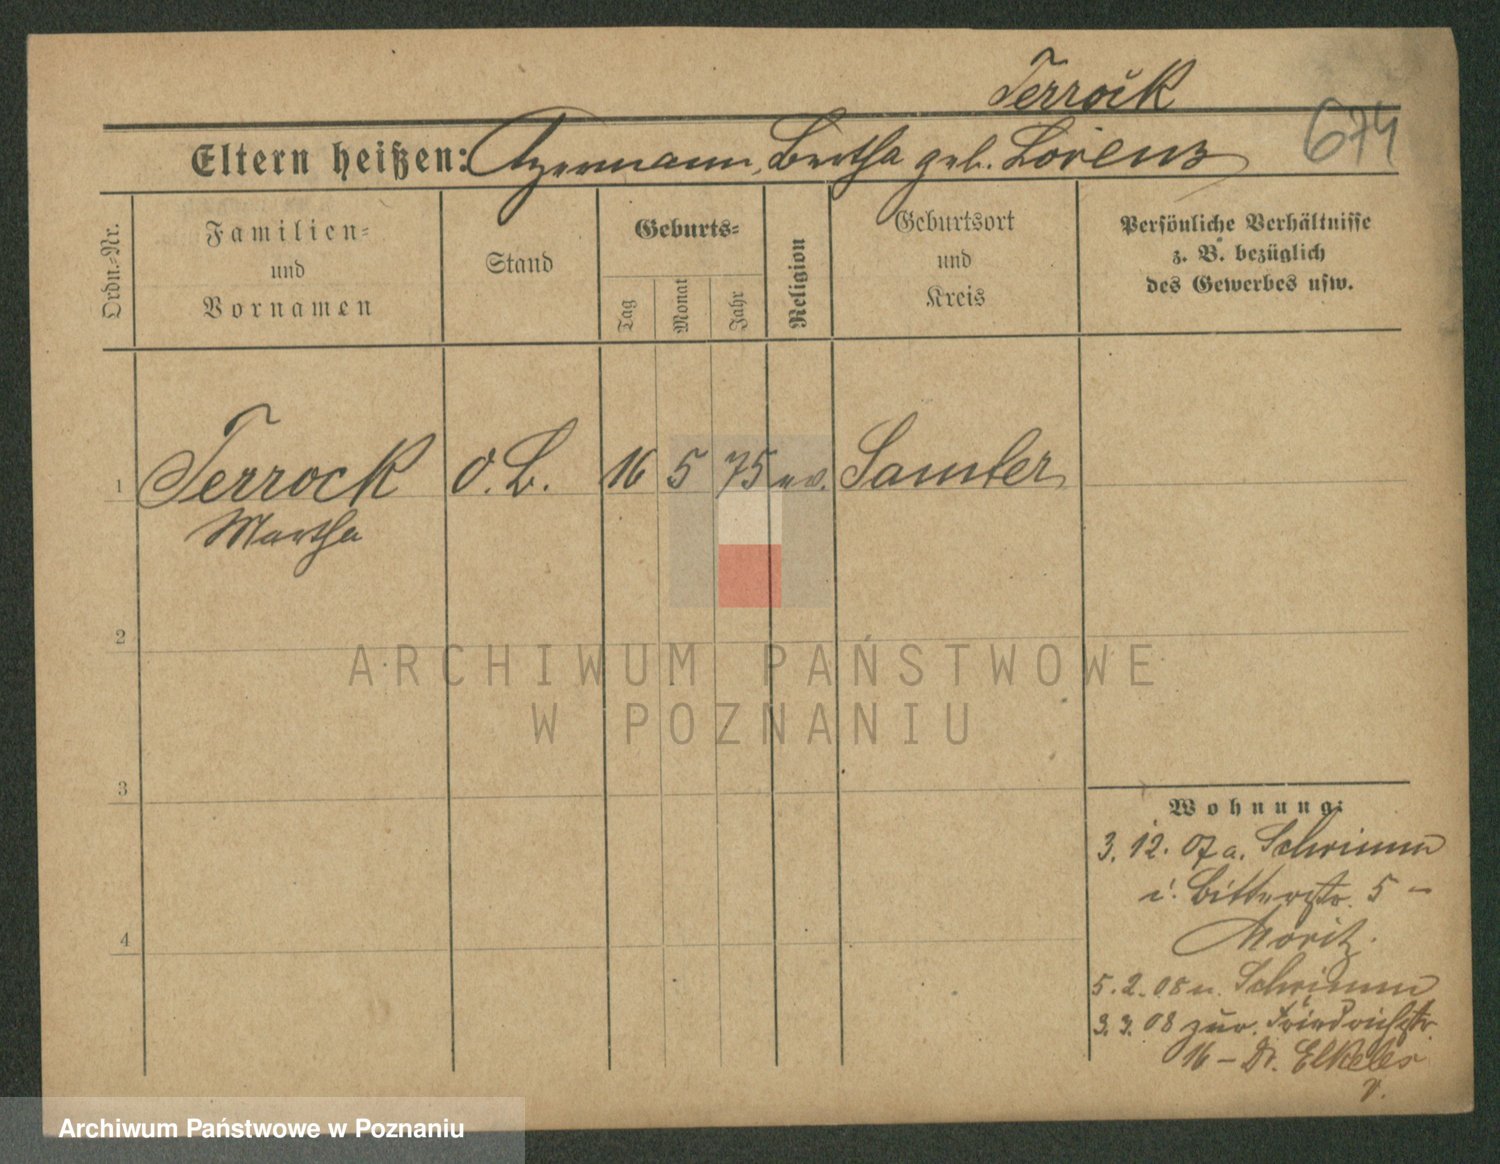 Terrock
674
Eltern heißen: Hermann, Bertha geb. Lorenz
Ordn.-Nr.
Familien-
und
Vornamen
Stand
Geburts-
Tag
Monat
Jahr
Religion
Geburtsort
und
Kreis
Persönliche Verhältnisse
z. B. bezüglich
des Gewerbes usw.
1 Terrock o. B. 16 5 75 ev. Samter
Martha
2
ARCHIWUM PAŃSTWOWE
W POZNANIU
3
4
Wohnung:
3. 12. 07 a. Schrimm
i. Bitterstr. 5 -
Moritz.
5. 2. 08 n. Schrimm
3. 3. 08 zur. Friedrichstr.
16 - Dr. Elkeles
Archiwum Państwowe w Poznaniu